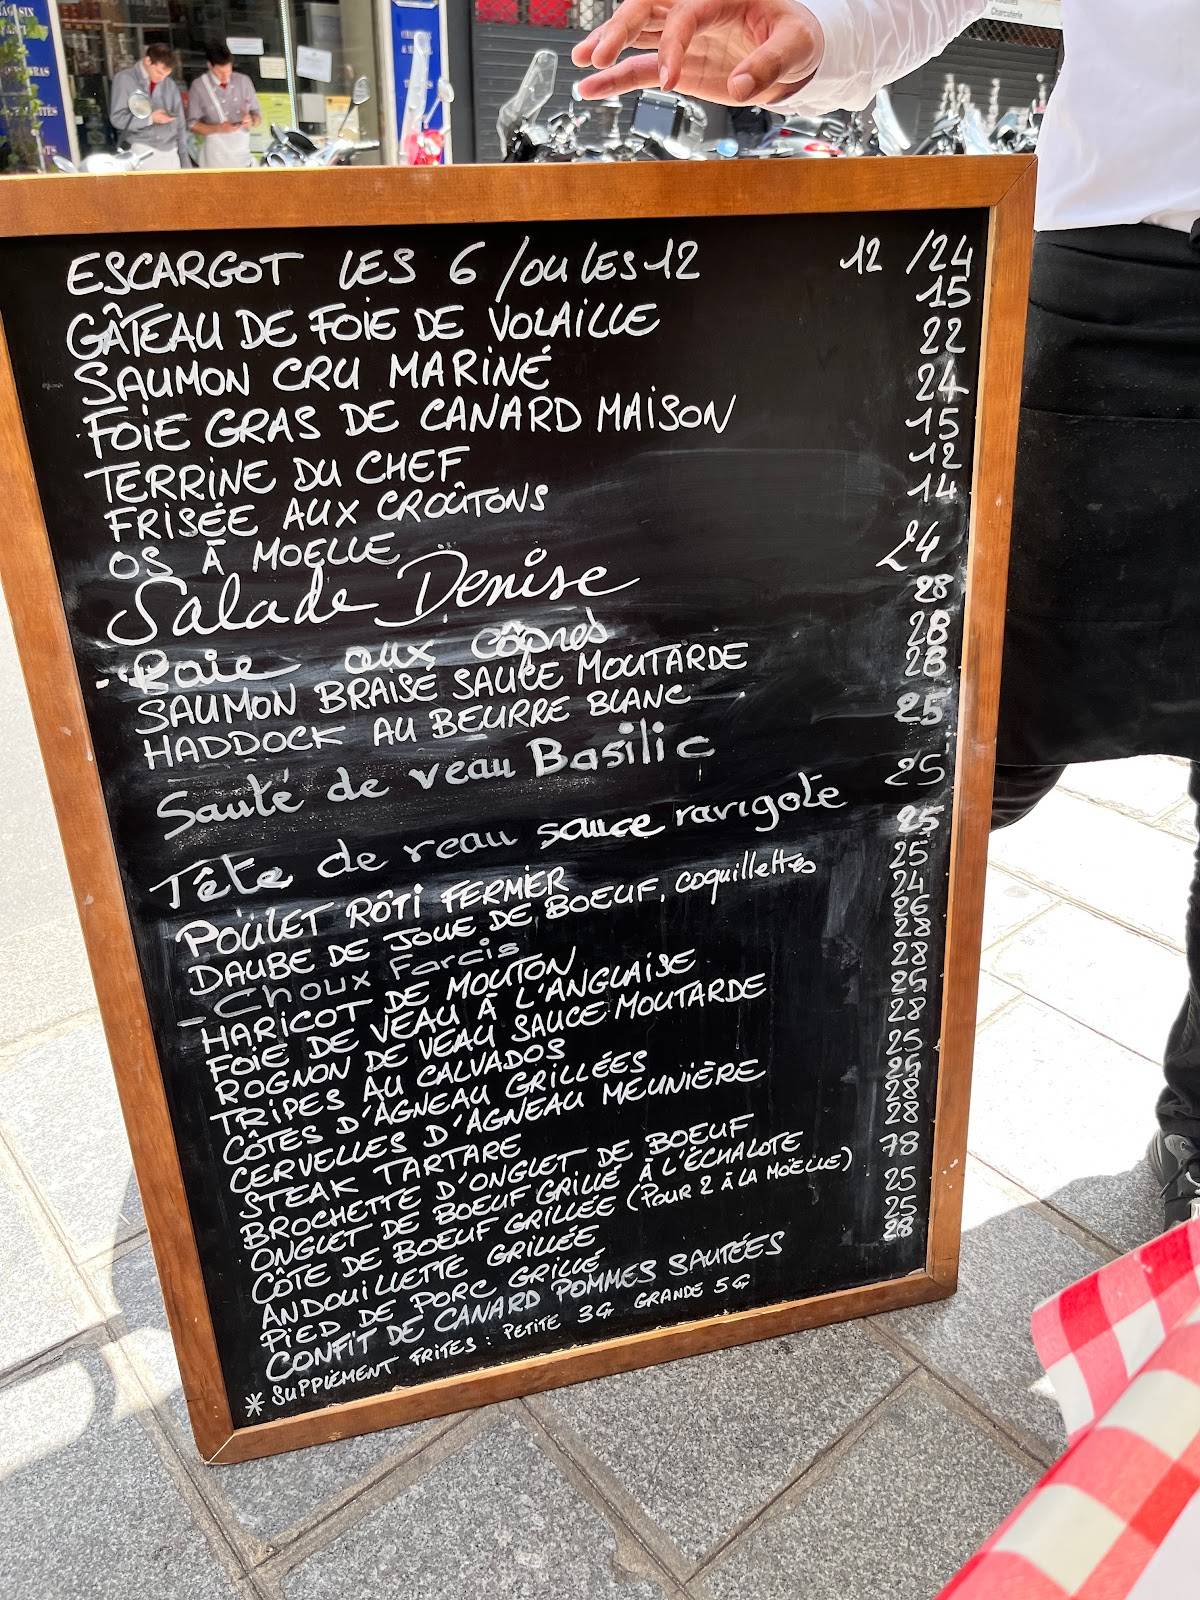 ESCARGOT LES 6 / OU LES 12 12 / 24
GÂTEAU DE FOIE DE VOLAILLE 15
SAUMON CRU MARINÉ 22
FOIE GRAS DE CANARD MAISON 24
TERRINE DU CHEF 15
FRISÉE AUX CROÛTONS 12
OS À MOELLE 14
Salade Denise 24
Raie aux câpres 28
SAUMON BRAISE SAUCE MOUTARDE 28
HADDOCK AU BEURRE BLANC 28
Sauté de veau Basilic 25
Tête de veau sauce ravigote 25
POULET RÔTI FERMIER 25
DAUBE DE JOUE DE BOEUF, coquillettes 25
- Choux Farcis 24
HARICOT DE MOUTON 26
FOIE DE VEAU À L'ANGLAISE 28
ROGNON DE VEAU SAUCE MOUTARDE 28
TRIPES AU CALVADOS 25
CÔTES D'AGNEAU GRILLÉES 28
CERVELLES D'AGNEAU MEUNIÈRE 25
STEAK TARTARE 25
BROCHETTE D'ONGLET DE BOEUF 28
ONGLET DE BOEUF GRILLÉ À L'ÉCHALOTE 28
CÔTE DE BOEUF GRILLÉE (POUR 2 À LA MOËLLE) 78
ANDOUILLETTE GRILLÉE 25
PIED DE PORC GRILLÉ 25
CONFIT DE CANARD POMMES SAUTÉES 28
* SUPPLÉMENT FRITES : PETITE 3€ GRANDE 5€